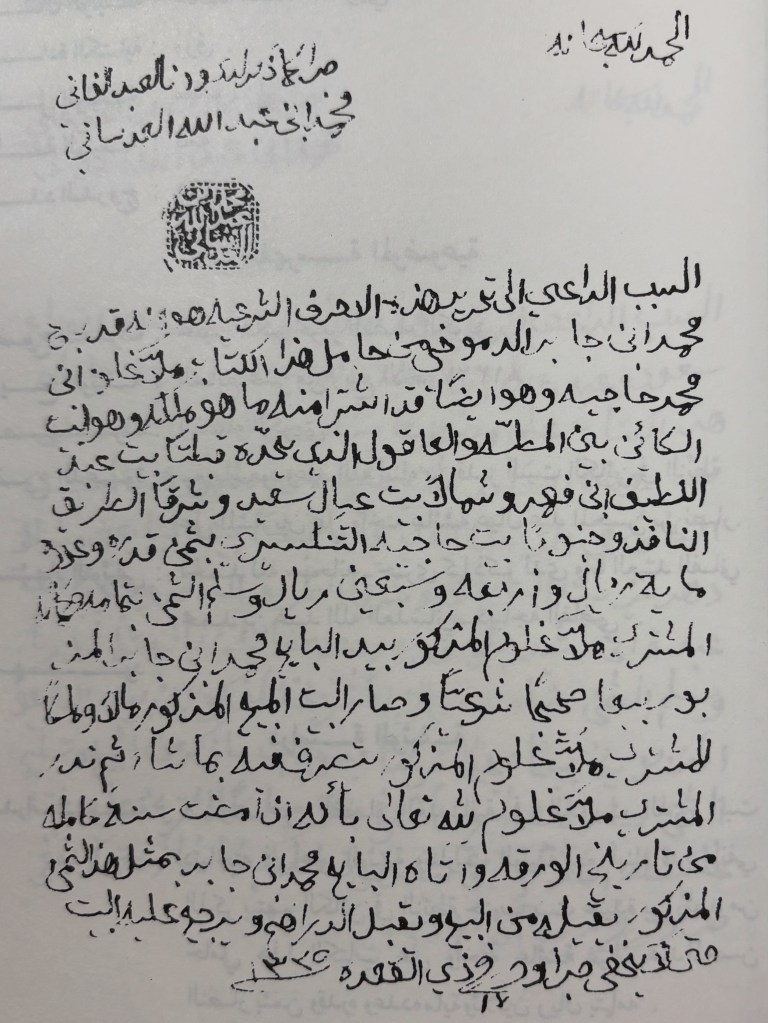 الحمد لله سبحانه
جرا كما ذكر لدي وانا العبد الفاني
محمد ابن عبد الله العدساني
السبب الداعي الى تحرير هذه الاحرف الشرعيه هو انه قد باع
محمد ابن جابر الدموخي من حامل هذا الكتاب ملا غلوم ابن
محمد حاجيه وهو ايضًا قد اشترا منه ما هو ملكه وهو البيت
الكائن بين المطبّه والعاقول الذي يحدّه قبلتًا بيت عبد
اللطيف ابن فهد وشمالاً بيت عيال سعيد وشرقًا الطريق
النافذ وجنوبًا بيت حاجيه التنلسيري بثمن قدره وعدده
ماية ريال واربعه وسبعين ريال وسلم الثمن بتمامه
المشتري ملا غلوم المذكور بيد البايع محمد ابن جابر المذ
بور بيعا صحيحًا شرعيًا وصار البيت المبيع المذكور مالاً وملكًا
للمشتري ملا غلوم المذكور يتصرف فيه بما شاء ثم نذر
المشتري ملا غلوم لله تعالى بأنه اذا مضت سنة كامله
من تاريخ الورقه واتاه البايع محمد ابن جابر بمثل هذا الثمن
المذكور يقيله من البيع ويقبل الدراهم ويرجع عليه البيت
حتى لا يخفى جرا وحرر في ١٧ ذي القعده ١٣٣٥